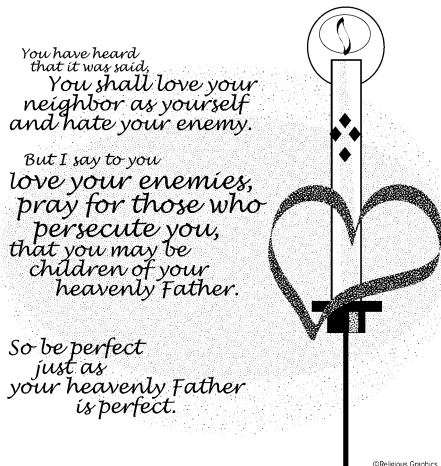 You have heard
that it was said,
You shall love your
neighbor as yourself
and hate your enemy.
But I say to you
love your enemies,
pray for those who
persecute you,
that you may be
children of your
heavenly Father.
So be perfect
just as
your heavenly Father
is perfect.
©Religious Graphics